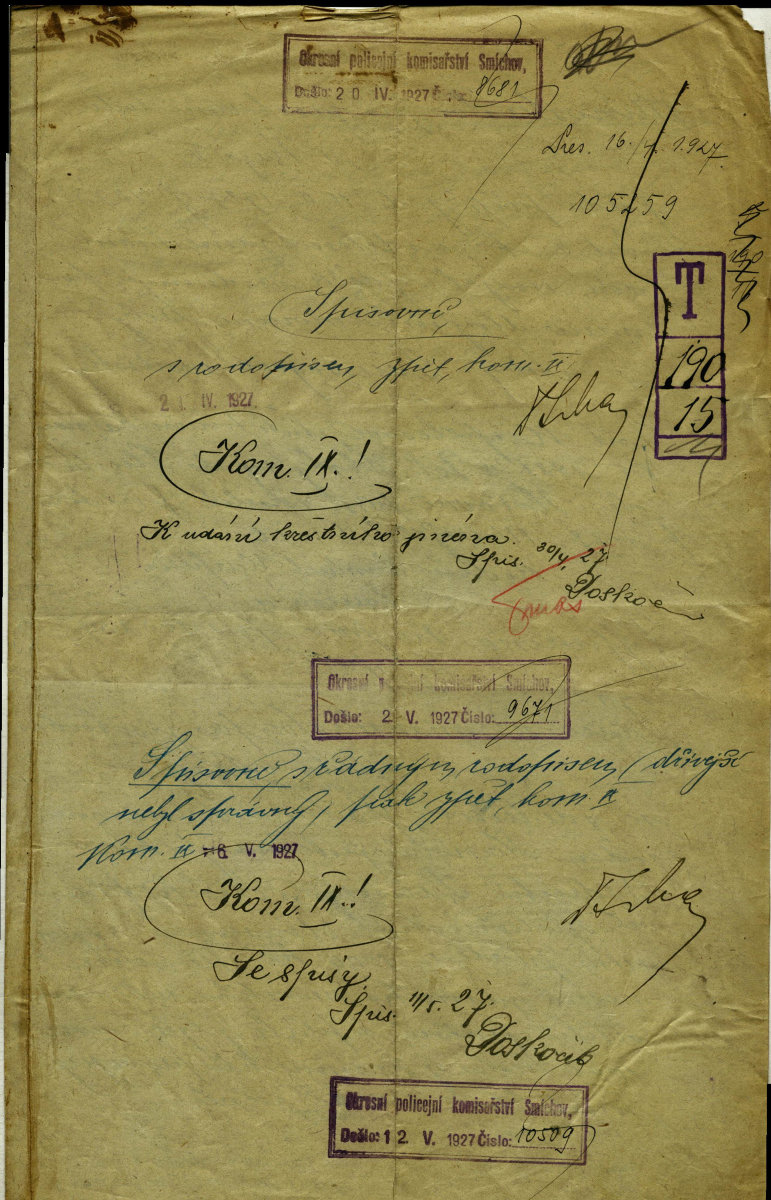 Okresní policejní komisařství Smíchov,
Došlo: 20 IV. 1927 Číslo: 8681
Pres. 16./4. 1927.
105259
T
190
15
Spisovně,
s rodopisem zpět, kom. IX
2 IV. 1927.
Kom. IX.!
K udání křestního jména.
Spis. 30/4. 27
Doskočil
Okresní policejní komisařství Smíchov,
Došlo: 2. V. 1927 Číslo: 9671
Spisovně, s řádným rodopisem (dřívější
nebyl správný) pak zpět, kom. IX
Kom. IX 6. V. 1927
Kom. IX.!
Se spisy.
Spis. 11/5. 27.
Doskočil
Okresní policejní komisařství Smíchov,
Došlo: 12. V. 1927 Číslo: 10509